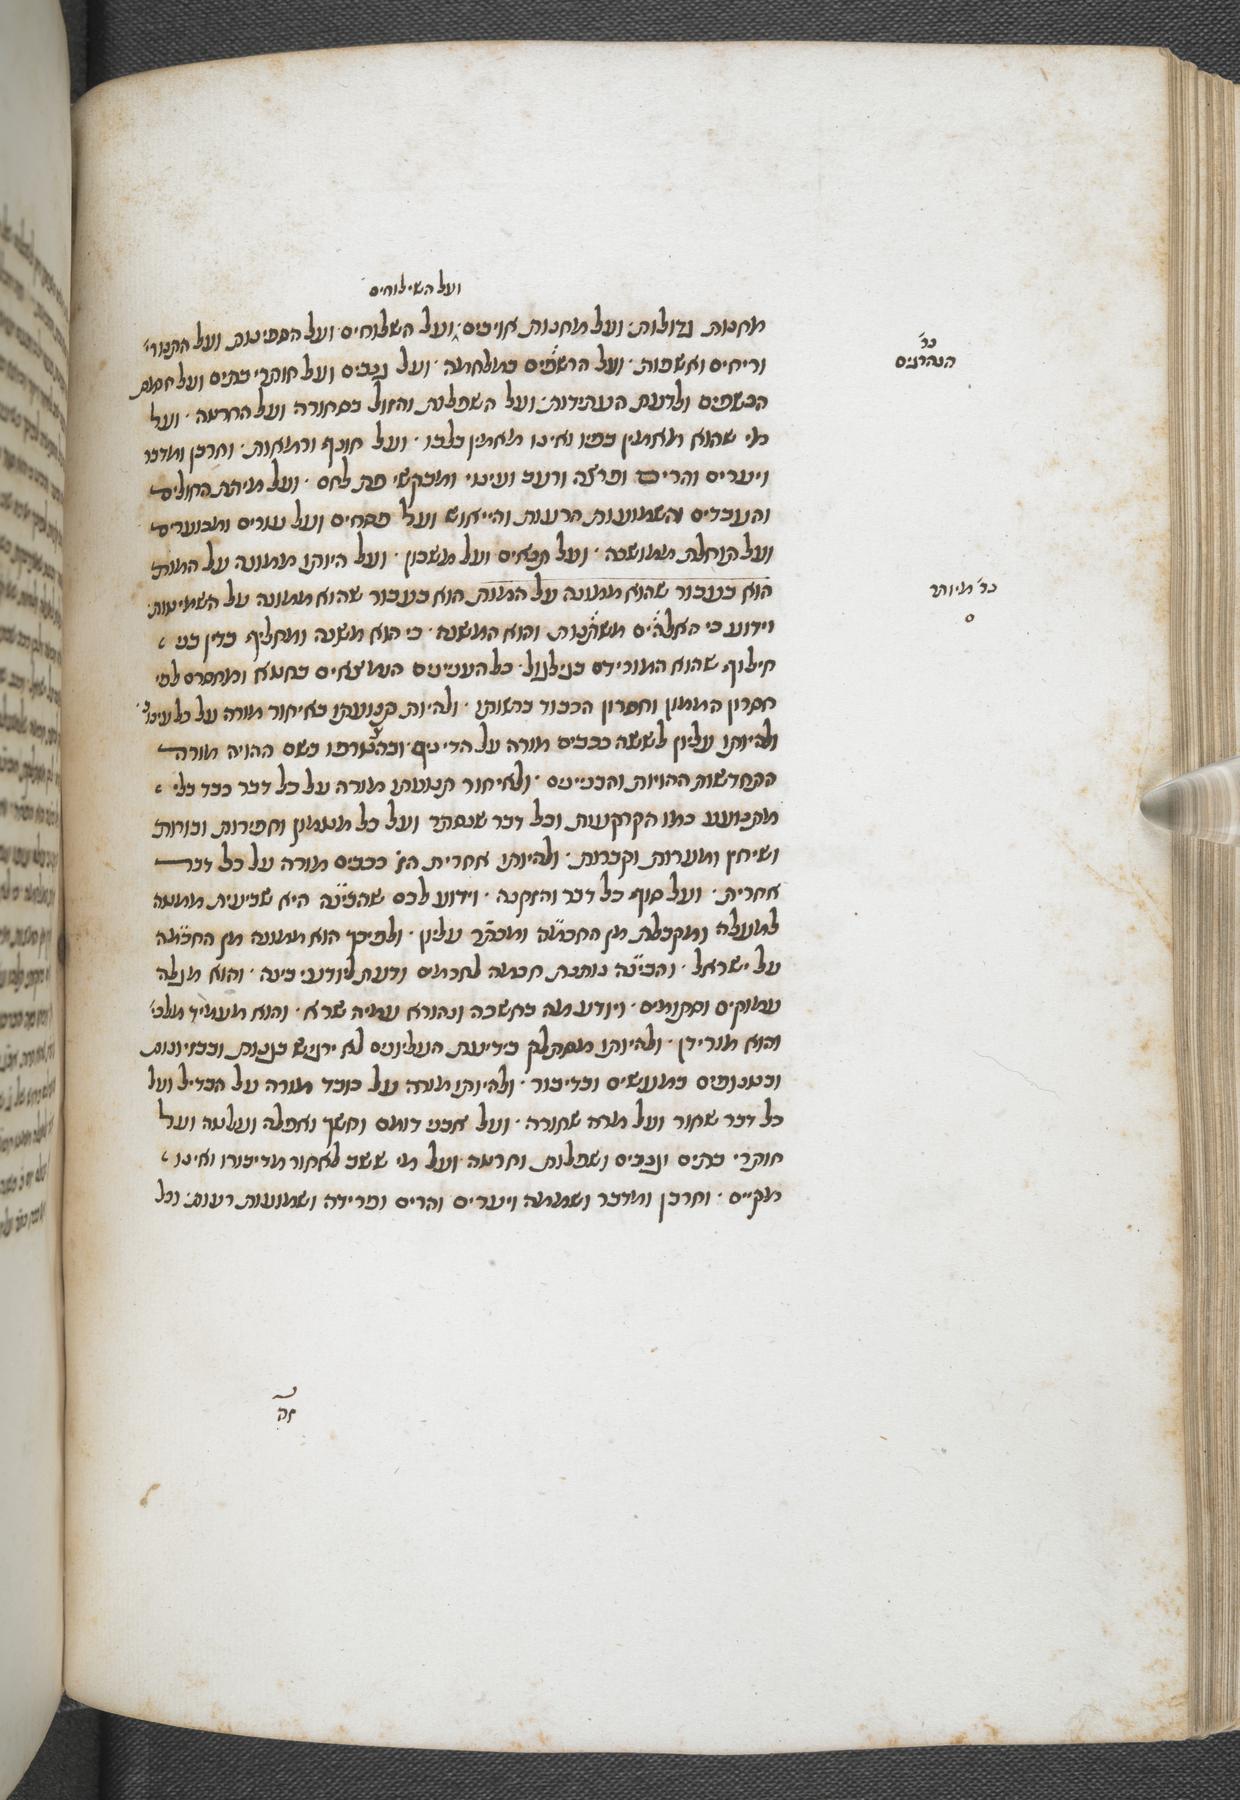 ועל השילוחים
מחנות גדולות· ועל מחנות אויבים· ועל השלוחים ועל הספינות ועל התנורי׳
נר׳
הנהרגים
וריחים ואשפות· ועל הרשפים במלחמה· ועל גנבים ועל חותרי בתים ועל חכמת
הכשפים ולדעת העתידות· ועל השפלות והזול בסחורה ועל החרמה· ועל
מי שהוא מאמין בפיו ואינו מאמין בלבו· ועל חונף ורמאות· וחרבן ומדבר
ויערים והרים ופרצה ורעב ועינוי ומבקשי פת לחם· ועל מיתת החולים
והעבדים והשמועות הרעות והייאוש ועל פסחים ועל עורים ומכוערים
ועל תוחלת ממושכה· ועל תנאים ועל משכון· ועל היותו ממונה על המות
נר׳ מיותר
הוא בעבור שהוא ממונה על המות הוא בעבור שהוא ממונה על השמיטות
וידוע כי האלהים משתנות והוא המשנה· כי הוא משנה ומחליף כדין בני
חילוף שהוא המורידם בגילגול· כל הענינים הנמצאים בחטא ומחסרם לפי
חסרון הממון וחסרון הכבוד ברשותו· ולהיות תנועתו באיחור מורה על כל עינוי
ולהיותו עליון לששה ככבים מורה על הדינים· ובהצטרפו בשם ההויה מורה
התחדשות ההויות והבניינים· ולאיחור תנועתו מורה על כל דבר כבד בלי
מתנועע כמו הקרקעות וכל דבר שנסתר ועל כל מטמון וחפירות ובורות
ושיחין ומערות וקברות· ולהיותו אחרית הז׳ ככבים מורה על כל דבר
אחרית· ועל סוף כל דבר והזקנה· וידוע לכם שהבינה היא שביעית ממטה
למעלה ומקבלת מן החכמה ומכתר עליון· ולפיכך הוא ממונה מן החכמה
על ישראל· והבינה נותנת חכמה לחכמים ודעת ליודעי בינה· והוא מגלה
עמוקים וסתומים· ויודע מה בחשכה ונהורא עמיה שרא· והוא מעמיד מלכי׳
והוא מורידן· ולהיותו מסתלק בידיעת העליונים לא ירגיש בגנות ובבזיונות
ובטנופים במעשים ובדיבור· ולהיותו מורה על כובד מורה על הבדיל ועל
כל דבר שחור ועל מרה שחורה· ועל אבני דומם וחשך ואפלה ועלטה ועל
חותרי בתים וגנבים ושפלות וחרמה ועל מי ששב לאחור מדיבורו ואינו
מקיים· וחרבן ומדבר ושממה ויערים והרים ופרידה ושמועות רעות· וכל
זה